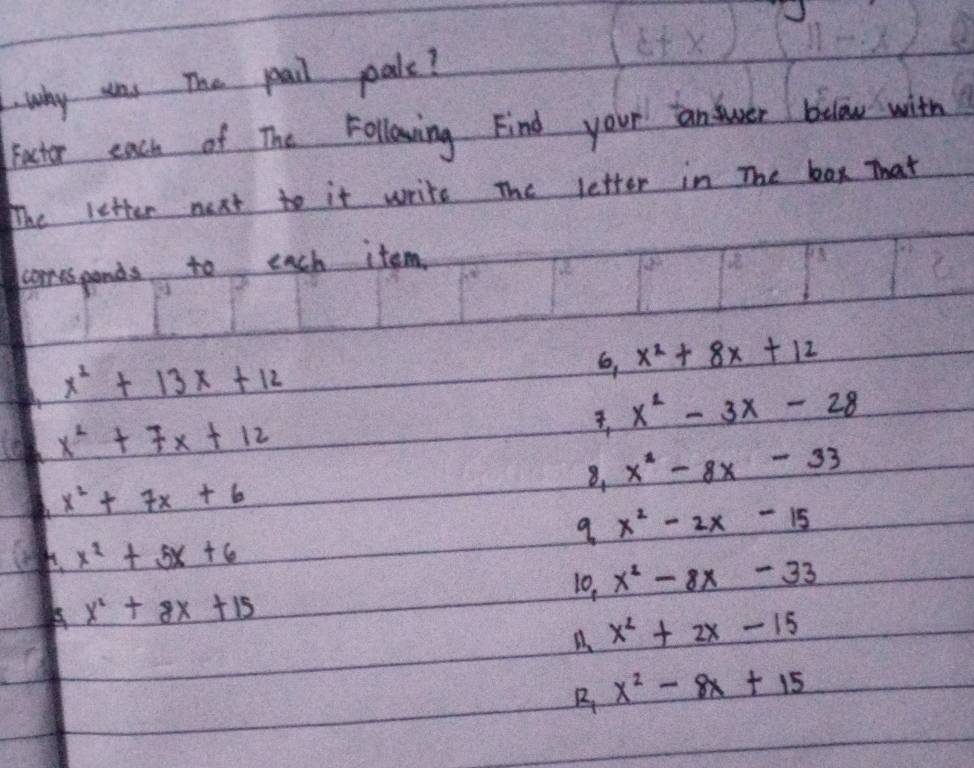 . Why was The pail pale?
Factor each of The Following Find your answer below with
The letter next to it write The letter in The box That
corresponds to each item.
x² + 13x + 12
x² + 7x + 12
x² + 7x + 6
x² + 5x + 6
5, x² + 8x + 15
6, x² + 8x + 12
7, x² - 3x - 28
8, x² - 8x - 33
9, x² - 2x - 15
10, x² - 8x - 33
11, x² + 2x - 15
12, x² - 8x + 15